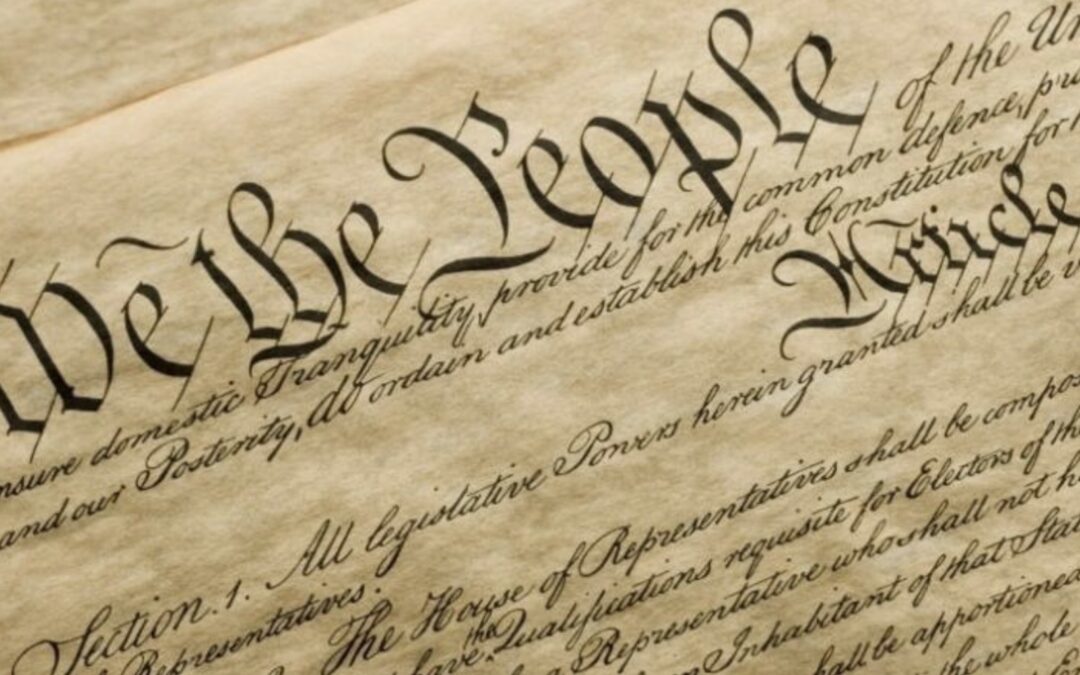 We the People of the Un
nsure domestic Tranquility, provide for the common defence, pro
and our Posterity, do ordain and establish this Constitution for
Article
Section. 1. All legislative Powers herein granted shall be
Representatives.
The House of Representatives shall be compos
have the Qualifications requisite for Electors of the
a Representative who shall not h
Inhabitant of that Stat
shall be apportioned
the whole